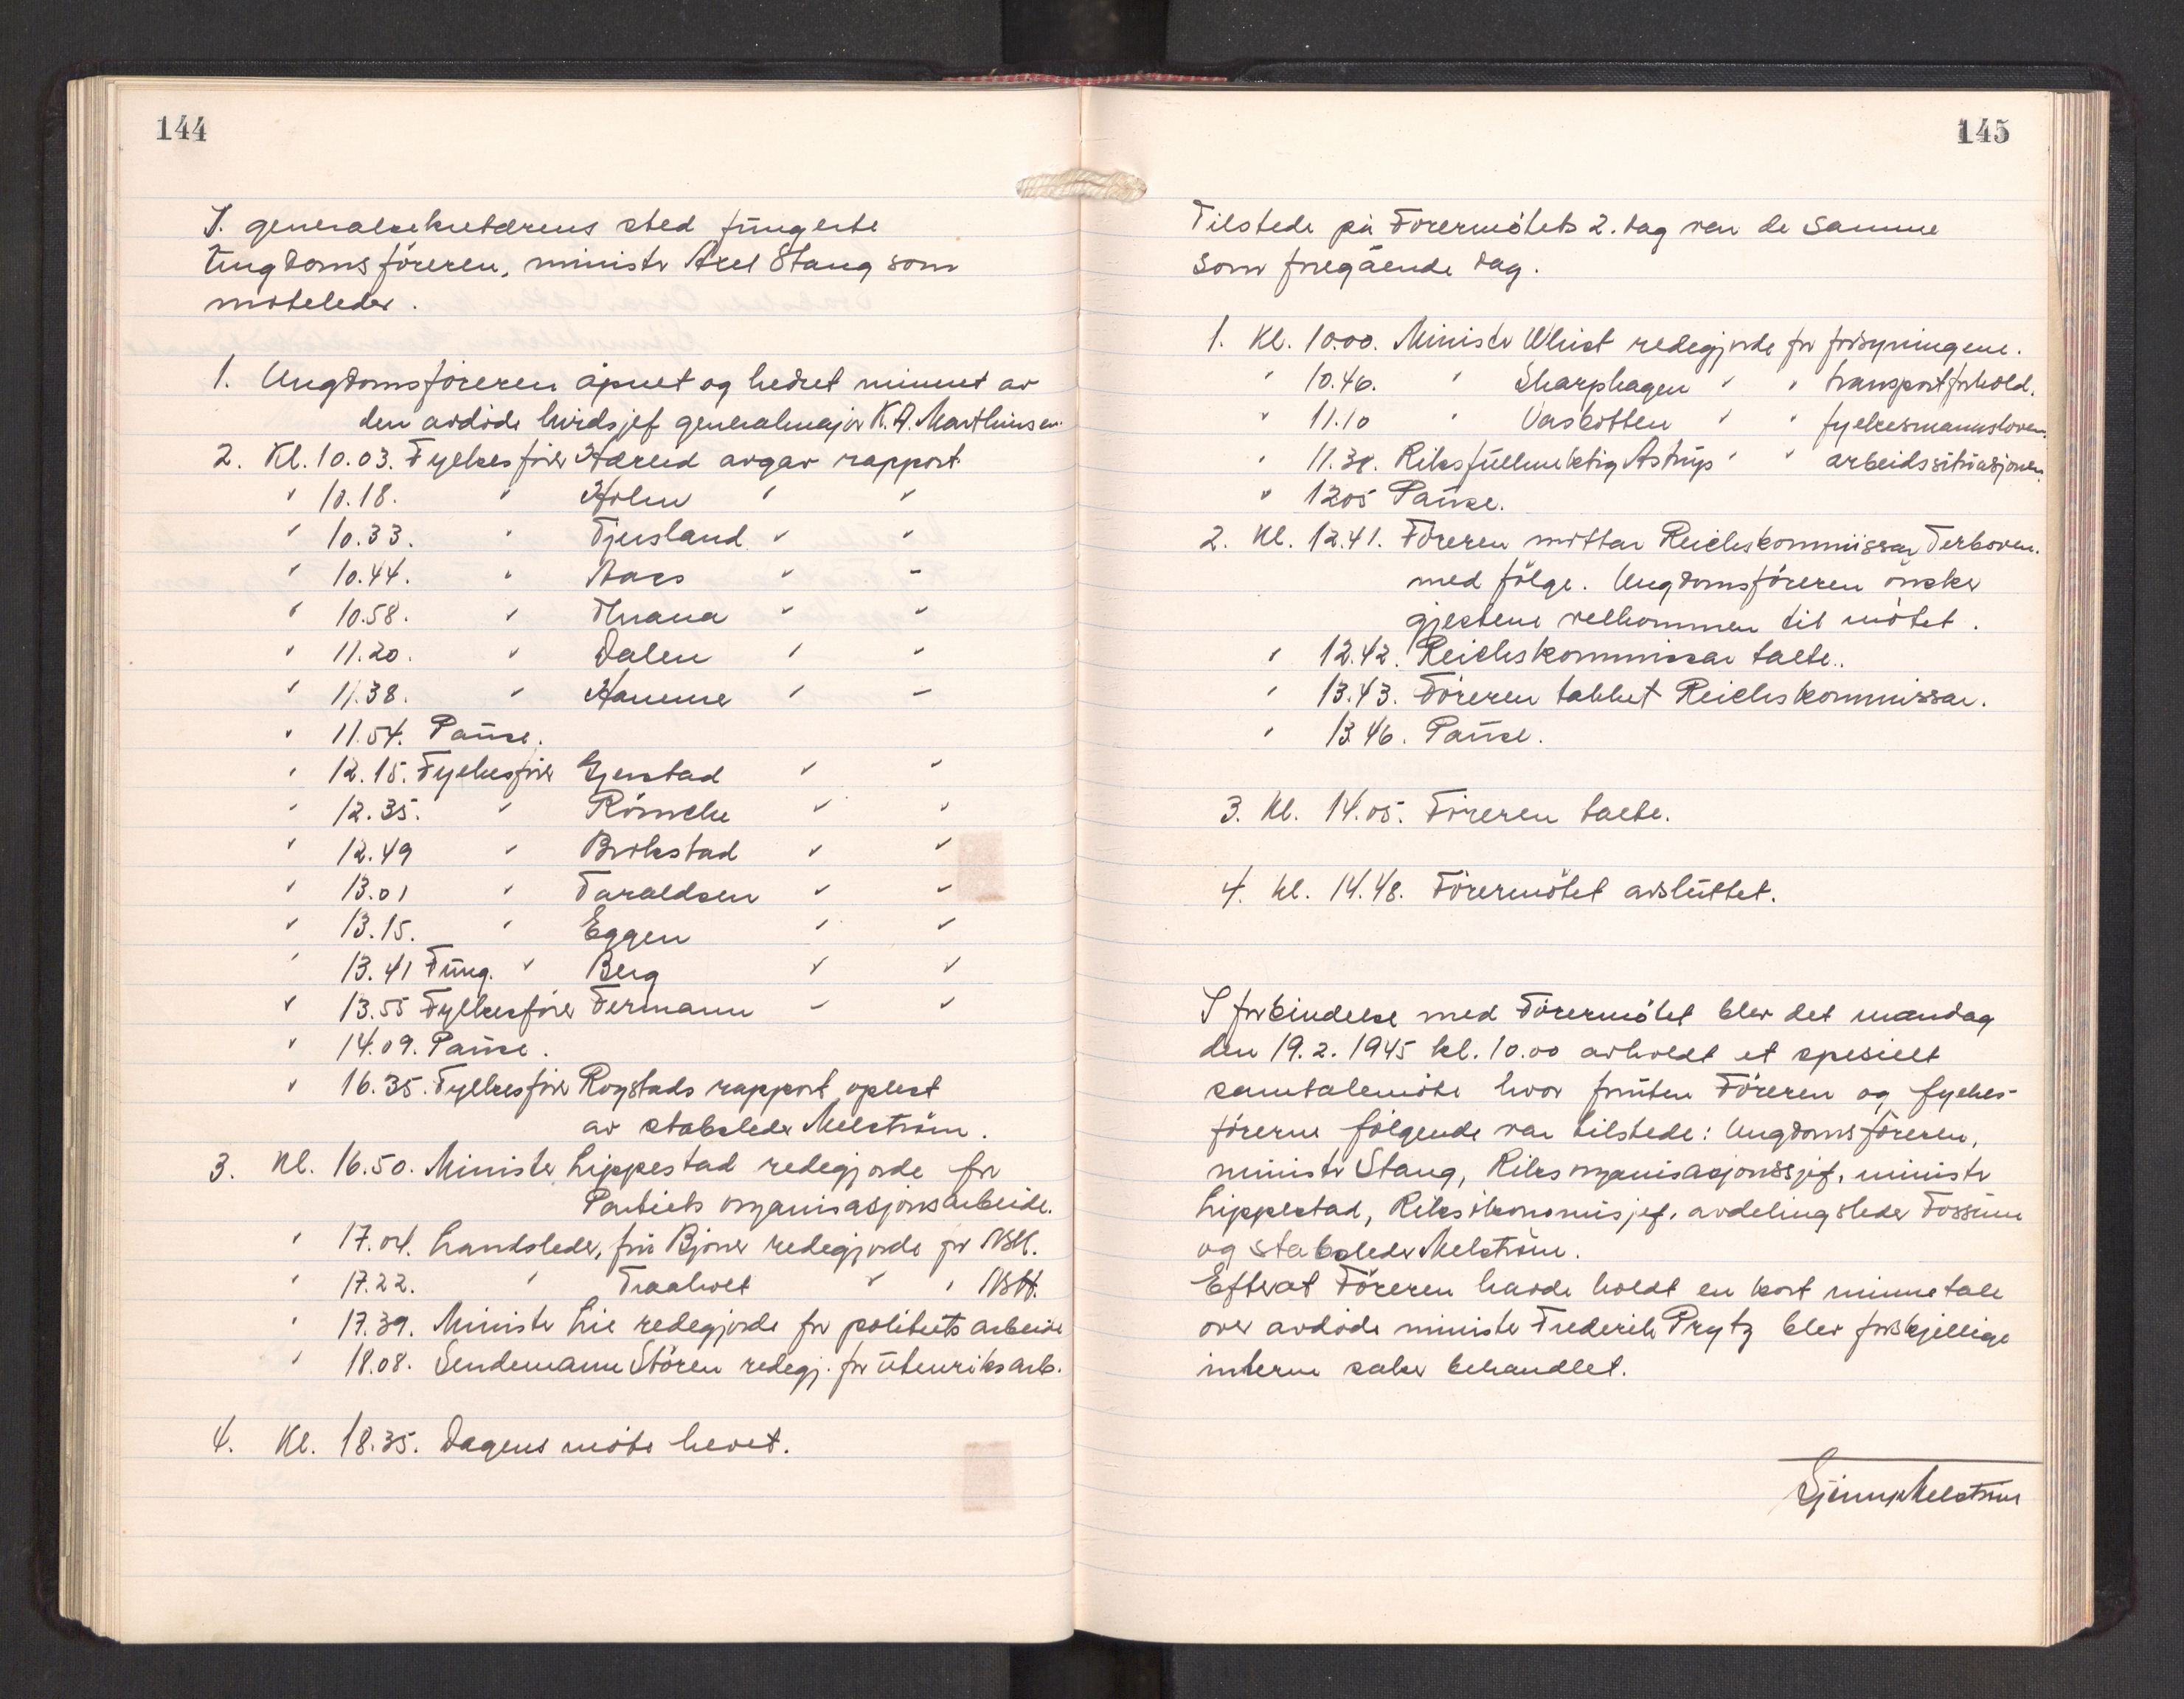 144
I. generalsekretærens sted fungerte
Ungdomsføreren, minister Axel Stang som
møteleder.
1. Ungdomsføreren åpnet og hedret minnet av
den avdöde hirdsjef generalmajor K.A. Marthinsen.
2. Kl. 10.03. Fylkesförer Hærud avgav rapport
" 10.18. " Holm " "
" 10.33. " Fjersland " "
" 10.44. " Aass " "
" 10.58. " Thrana " "
" 11.20. " Dalen " "
" 11.38. " Hamme " "
" 11.54. Pause.
" 12.15. Fylkesförer Gjerstad " "
" 12.35. " Römcke " "
" 12.49 " Brokstad " "
" 13.01 " Taraldsen " "
" 13.15. " Eggen " "
" 13.41 Fung. " Berg " "
" 13.55 Fylkesförer Fermann " "
" 14.09. Pause.
" 16.35. Fylkesförer Rogstads rapport oplest
av stabsleder Melström.
3. Kl. 16.50. Minister Lippestad redegjorde for
Partiets organisasjonsarbeide.
" 17.04. Landsleder, fru Bjoner redegjorde for NSK.
" 17.22. " Traaholt " " NSH.
" 17.39. Minister Lie redegjorde for politiets arbeide
" 18.08. Sendemann Stören redegj. for utenriksarb.
4. Kl. 18.35. Dagens möte hevet.
145
Tilstede på Förermötets 2. dag var de samme
som foregående dag.
1. Kl. 10.00. Minister Whist redegjorde for forsyningene.
" 10.46. " Skarphagen " " transportforhold.
" 11.10 " Vasbotten " " fylkesmannsloven.
" 11.38. Riksfullmektig Astrup " " arbeidssituasjonen.
" 1205 Pause.
2. Kl. 12.41. Föreren mottar Reichskommissar Terboven.
med fölge. Ungdomsföreren önsker
gjestene velkommen til mötet.
" 12.42. Reichskommissar talte..
" 13.43. Föreren takket Reichskommissar.
" 13.46. Pause.
3. Kl. 14.05. Föreren talte.
4. Kl. 14.48. Förermötet avsluttet.
I forbindelse med Förermötet blev det mandag
den 19.2.1945 kl. 10.00 avholdt et spesielt
samtalemöte hvor foruten Föreren og fylkes-
förerne fölgende var tilstede: Ungdomsföreren,
minister Stang, Riksorganisasjonssjef, minister
Lippestad, Riksökonomisjef, avdelingsleder Fossum
og stabsleder Melström.
Efter at Föreren havde holdt en kort minnetale
over avdöde minister Frederik Prytz blev forskjellige
interne saker behandlet.
Melström